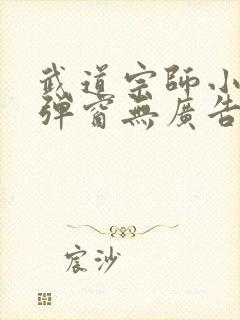 武道宗師小
彈窗無廣告
宸沙